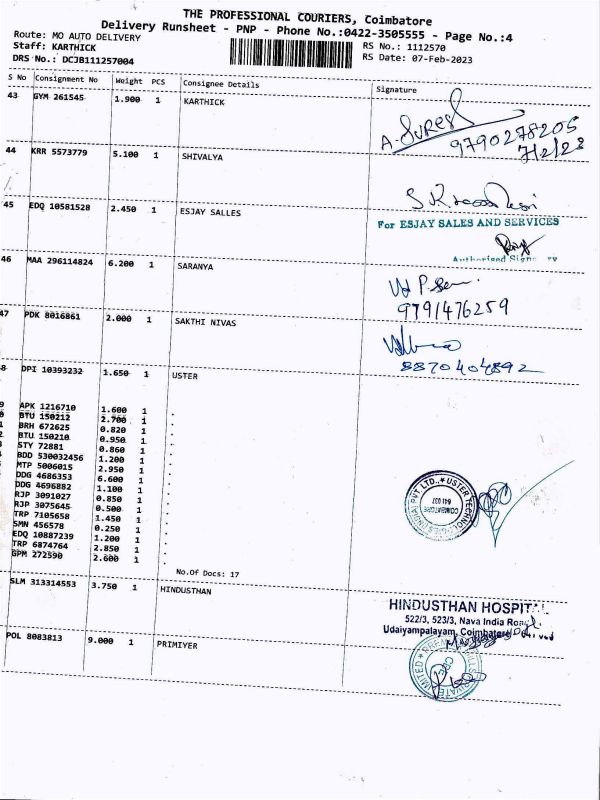 THE PROFESSIONAL COURIERS, Coimbatore
Delivery Runsheet - PNP - Phone No.:0422-3505555 - Page No.:4
Route: MO AUTO DELIVERY
Staff: KARTHICK
RS No.: 1112570
DRS No.: DCJB111257004
RS Date: 07-Feb-2023
S No Consignment No Weight PCS Consignee Details Signature
43 GYM 261545 1.900 1 KARTHICK
A. SURESH
9790278205
7/2/23
44 KRR 5573779 5.100 1 SHIVALYA
45 EDQ 10581528 2.450 1 ESJAY SALLES
For ESJAY SALES AND SERVICES
46 MAA 296114824 6.200 1 SARANYA
9791476259
47 PDK 8016861 2.000 1 SAKTHI NIVAS
8870404892
8 DPI 10393232 1.650 1 USTER
9 APK 1216710 1.600 1 .
0 BTU 150212 2.700 1 .
1 BRH 672625 0.820 1 .
2 BTU 150210 0.950 1 .
3 STY 72881 0.860 1 .
4 BDD 530032456 1.200 1 .
5 MTP 5006015 2.950 1 .
DDG 4686353 6.600 1 .
DDG 4696882 1.100 1 .
RJP 3091027 0.850 1 .
RJP 3075645 0.500 1 .
TRP 7105658 1.450 1 .
SMN 456578 0.250 1 .
EDQ 10887239 1.200 1 .
TRP 6874764 2.850 1 .
GPM 272590 2.600 1 .
USTER TECHNOLOGIES (INDIA) PVT LTD.,
COIMBATORE
641 037
No.Of Docs: 17
SLM 313314553 3.750 1 HINDUSTHAN
HINDUSTHAN HOSPITAL
522/3, 523/3, Nava India Road,
Udaiyampalayam, Coimbatore
POL 8083813 9.000 1 PRIMIYER
CBE